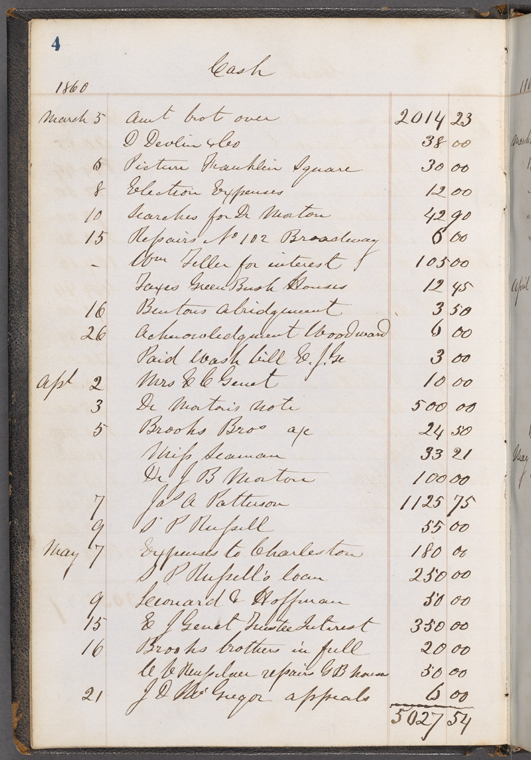 4
Cash
1860
March 5 Amt brot over 2014 23
D Devlin & Co 38 00
6 Picture Franklin Square 30 00
8 Election Expenses 12 00
10 Searches for Dr Morton 42 90
15 Repairs No 102 Broadway 6 00
- Wm Feller for interest 105 00
Taxes Green Bush Houses 12 45
16 Bentons Abridgement 3 50
26 Acknowledgment Woodward 6 00
Paid Wash bill E. J. Ge 3 00
Apl 2 Mrs E C Genet 10 00
3 Dr Morton's note 500 00
5 Brooks Bros a/c 24 50
Miss Seaman 33 21
Dr J B Morton 100 00
7 Jas A Patterson 1125 75
9 S P Russell 55 00
May 7 Expenses to Charleston 180 00
S P Russell's loan 250 00
9 Leonard & Hoffman 50 00
15 E J Genet Trustee Interest 350 00
16 Brooks brothers in full 20 00
repairs G B house 50 00
21 J D McGregor appeals 6 00
5027 54